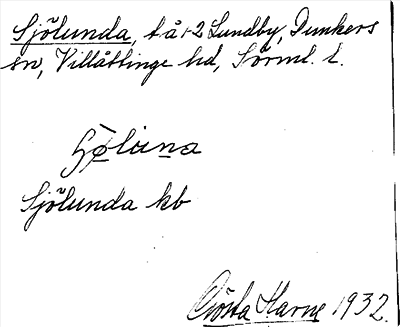 Sjölunda, t å 1-2 Lundby, Dunkers
sn, Villåttinge hd, Sörml. l.
Sjölunda kb
Gösta Harne 1932.